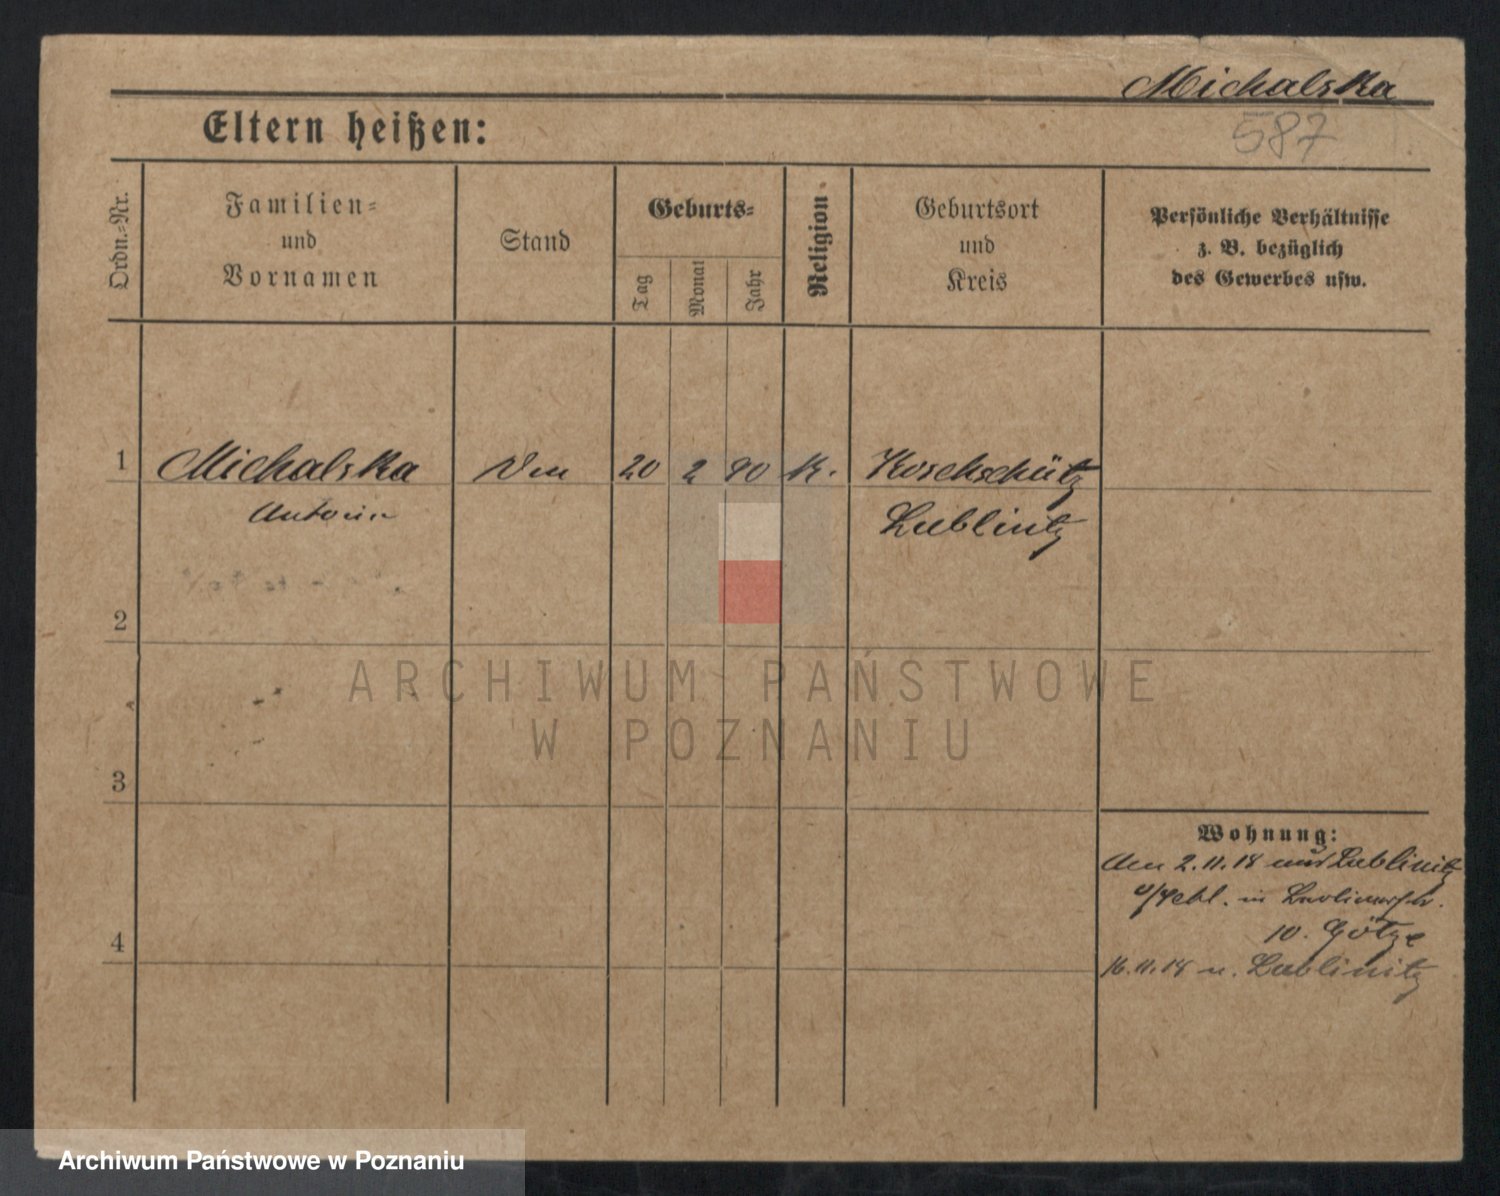 Michalska
587
Eltern heißen:
Ordn.-Nr.
Familien-
und
Vornamen
Stand
Geburts-
Tag
Monat
Jahr
Religion
Geburtsort
und
Kreis
Persönliche Verhältnisse
z. B. bezüglich
des Gewerbes usw.
1 Michalska 20 2 90 K. Koschschütz
Antonin Lublinitz
2
ARCHIWUM PAŃSTWOWE
W POZNANIU
3
Wohnung:
2.11.18 Lublinitz
in
10. Götze
4
16.11.18 n. Lublinitz
Archiwum Państwowe w Poznaniu